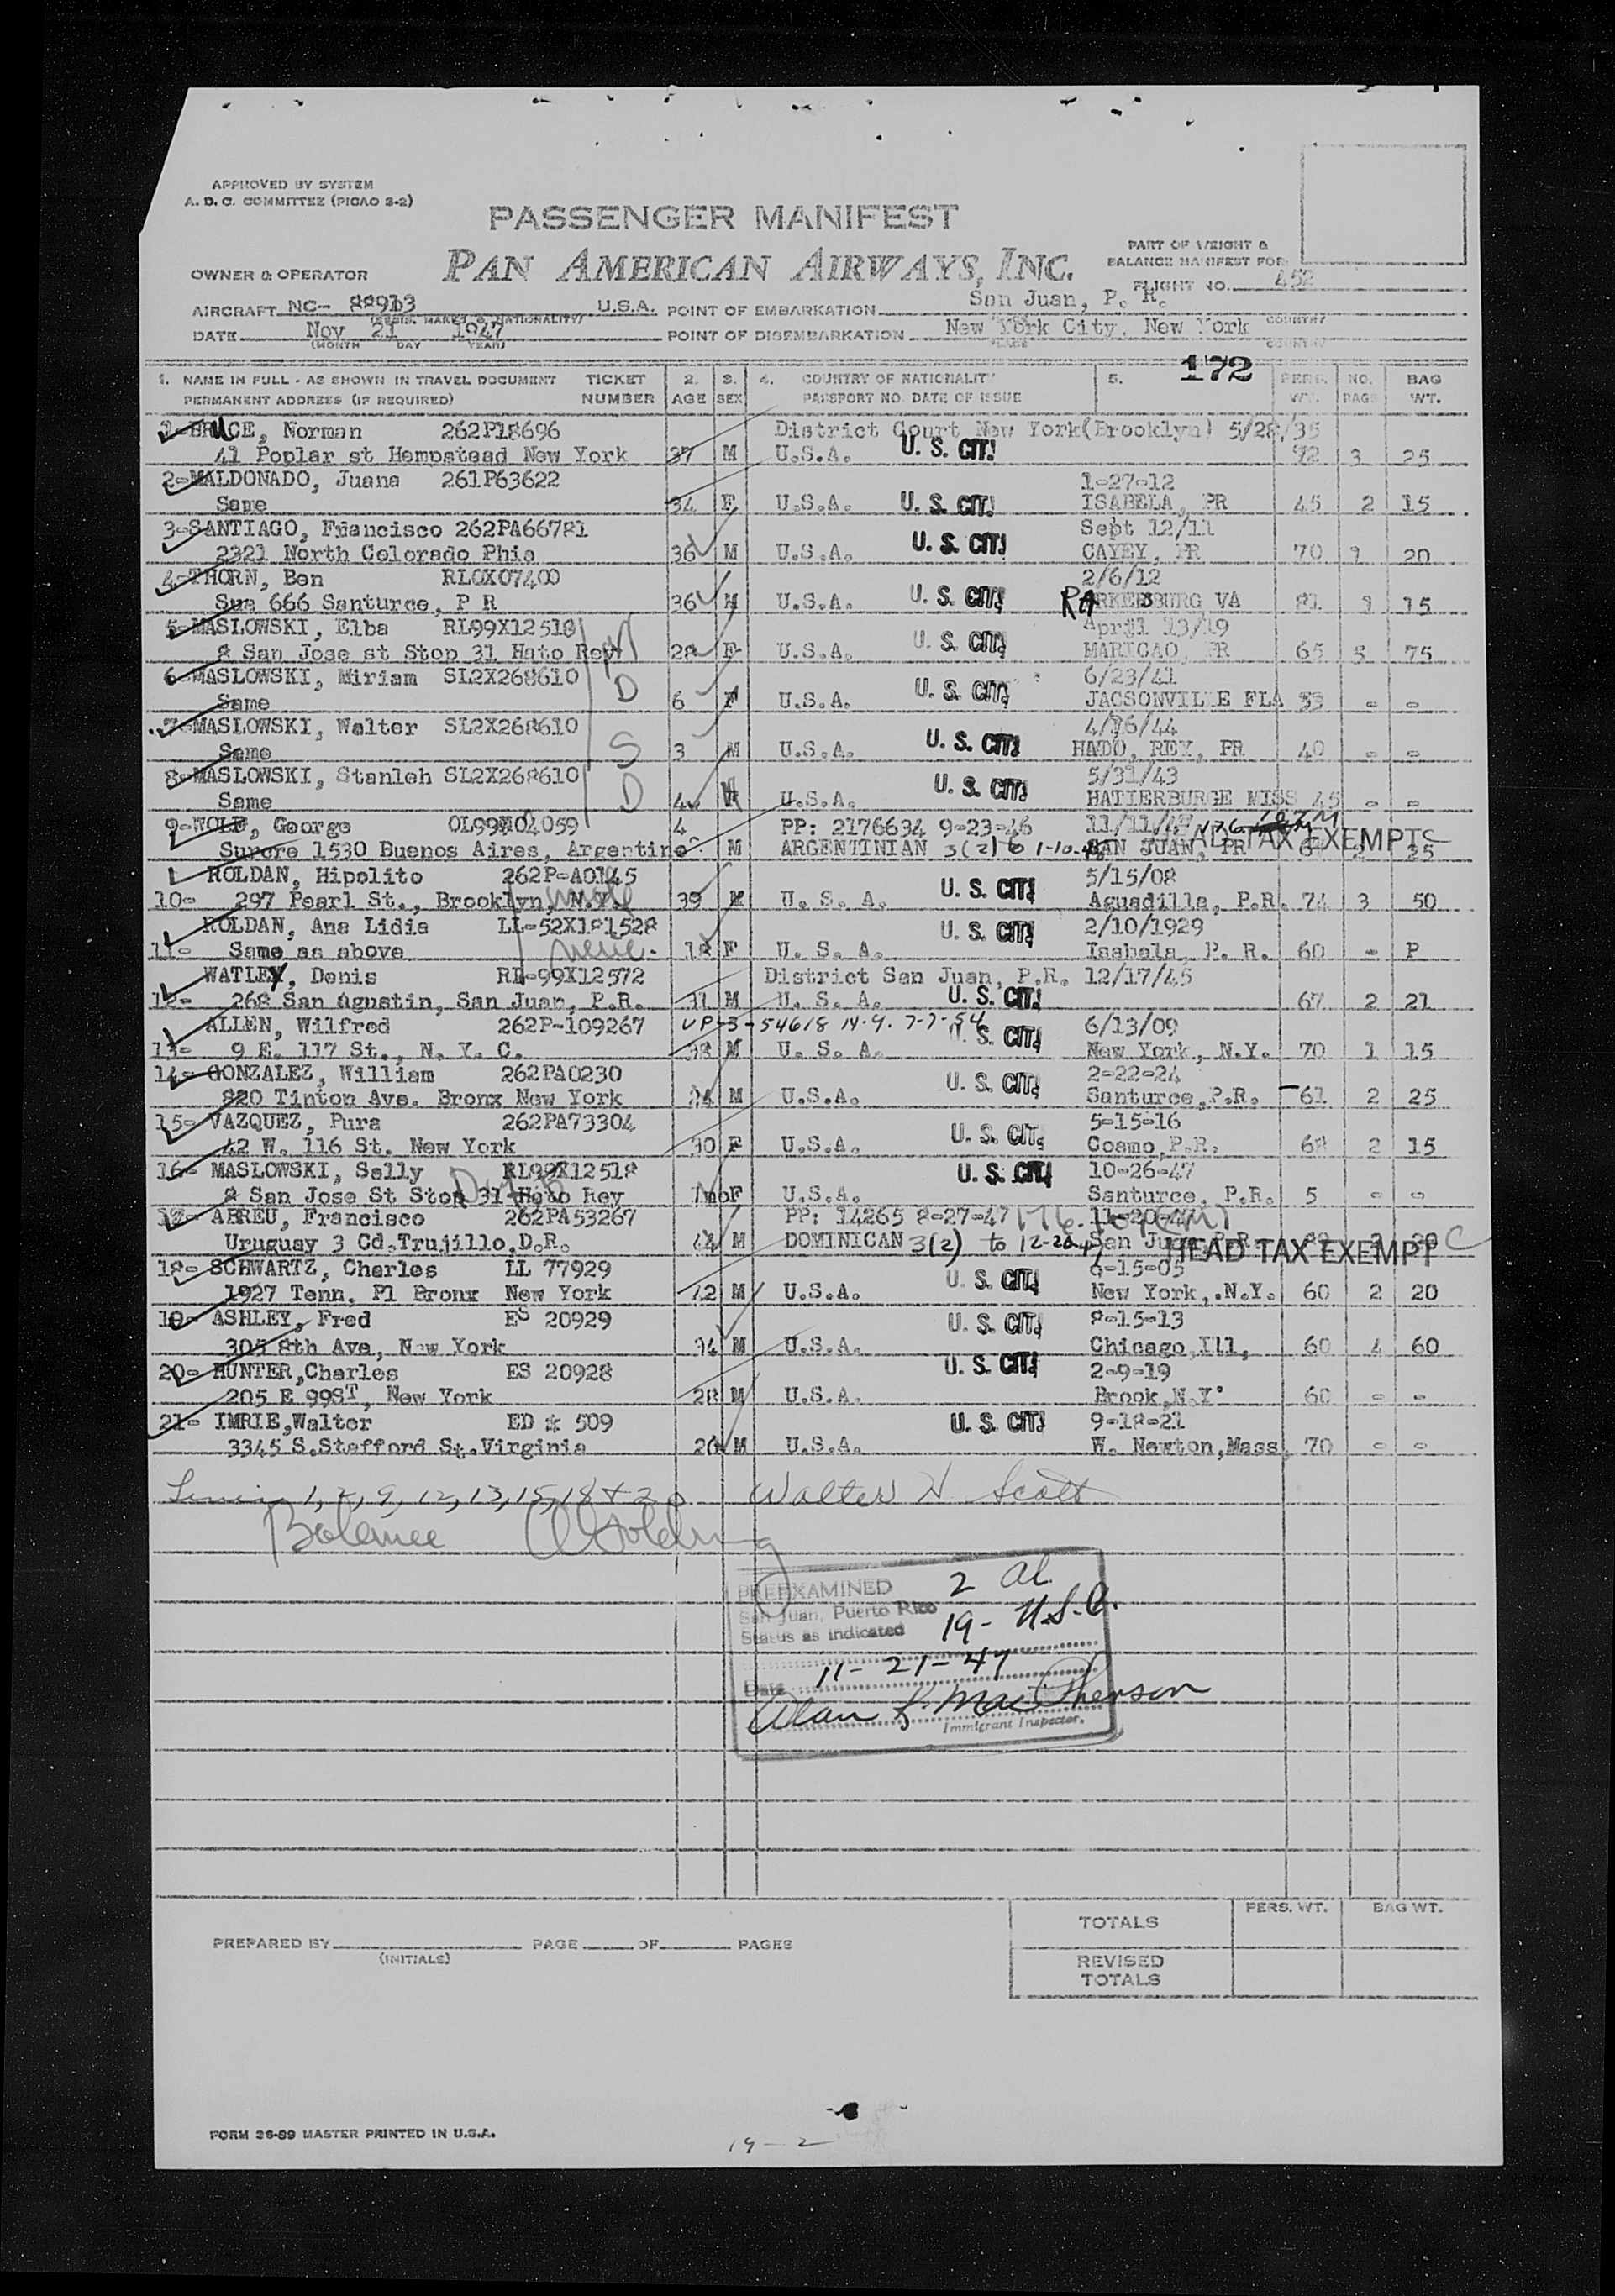 APPROVED BY SYSTEM
A. D. C. COMMITTEE (PICAO 2-2)
PASSENGER MANIFEST
PAN AMERICAN AIRWAYS, INC.
PART OF WEIGHT &
BALANCE MANIFEST FOR
OWNER & OPERATOR
FLIGHT NO. 452
AIRCRAFT NC-- 88913 U.S.A. POINT OF EMBARKATION San Juan, P. R.
DATE Nov 21 1947 POINT OF DISEMBARKATION New York City, New York
(MONTH DAY YEAR) PLACE COUNTRY
172
1. NAME IN FULL - AS SHOWN IN TRAVEL DOCUMENT TICKET 2. 3. 4. COUNTRY OF NATIONALITY 5. PERS. NO. BAG
PERMANENT ADDRESS (IF REQUIRED) NUMBER AGE SEX PASSPORT NO. DATE OF ISSUE WT. BAGS WT.
1-BRUCE, Norman 262P18696 District Court New York(Brooklyn) 5/28/35
41 Poplar st Hempstead New York 37 M U.S.A. U. S. CIT. 72 3 25
2-MALDONADO, Juana 261P63622 1-27-12
Same 34 F U.S.A. U. S. CIT. ISABELA, PR 45 2 15
3-SANTIAGO, Francisco 262PA66781 Sept 12/11
2321 North Colorado Phia 36 M U.S.A. U. S. CIT. CAYEY, PR 70 20
4-THORN, Ben RLOX07400 2/6/12
Sua 666 Santurce, P R 36 M U.S.A. U. S. CIT. PARKERSBURG VA 81 15
5-MASLOWSKI, Elba RL99X12518 April 13/19
8 San Jose st Stop 31 Hato Rey M 28 F U.S.A. U. S. CIT. MARICAO, PR 65 5 75
6-MASLOWSKI, Miriam SL2X268610 6/23/41
Same D 6 F U.S.A. U. S. CIT. JACSONVILLE FLA 33 - -
7-MASLOWSKI, Walter SL2X268610 4/26/44
Same S 3 M U.S.A. U. S. CIT. HATO, REY, PR 40 - -
8-MASLOWSKI, Stanleh SL2X268610 5/31/43
Same D 4 U.S.A. U. S. CIT. HATIERBURGE MISS 45 - -
9-WOLF, George OL99X04059 4 PP: 2176634 9-23-46 11/11/47
Sucre 1530 Buenos Aires, Argentine M ARGENTINIAN 3(2) to 1-10-48 SAN JUAN, PR HEAD TAX EXEMPT 25
ROLDAN, Hipolito 262P-A0145 5/15/08
10- 297 Pearl St., Brooklyn, N.Y. uncle 39 M U. S. A. U. S. CIT. Aguadilla, P.R. 74 3 50
ROLDAN, Ana Lidia LL-52X181528 2/10/1929
11- Same as above niece. 18 F U. S. A. U. S. CIT. Isabela, P. R. 60 - P
WATLEY, Denis RL-99X12572 District San Juan, P.R. 12/17/45
12- 268 San Agustin, San Juan, P.R. 31 M U. S. A. U. S. CIT. 67 2 21
ALLEN, Wilfred 262P-109267 VP-3-54618 N.Y. 7-7-54 6/13/09
13- 9 E. 117 St., N. Y. C. 38 M U. S. A. U. S. CIT. New York, N.Y. 70 1 15
14- GONZALEZ, William 262PA0230 2-22-24
820 Tinton Ave. Bronx New York 24 M U.S.A. U. S. CIT. Santurce, P.R. 61 2 25
15- VAZQUEZ, Pura 262PA73304 5-15-16
42 W. 116 St. New York 30 F U.S.A. U. S. CIT. Coamo, P.R. 68 2 15
16- MASLOWSKI, Sally RL99X12518 10-26-47
8 San Jose St Stop 31 Hato Rey 1mo F U.S.A. U. S. CIT. Santurce, P.R. 5 - -
17- ABREU, Francisco 262PA53267 PP: 14265 8-27-47 11-20-47
Uruguay 3 Cd.Trujillo,D.R. 44 M DOMINICAN 3(2) to 12-20-47 San Juan, P.R. HEAD TAX EXEMPT C
18- SCHWARTZ, Charles LL 77929 6-15-05
1927 Tenn. Pl Bronx New York 42 M U.S.A. U. S. CIT. New York,.N.Y. 60 2 20
19- ASHLEY, Fred ES 20929 8-15-13
305 8th Ave, New York 34 M U.S.A. U. S. CIT. Chicago,Ill, 60 4 60
20- HUNTER,Charles ES 20928 2-9-19
205 E 99ST, New York 28 M U.S.A. U. S. CIT. Brook,N.Y. 60 - -
21- IMRIE,Walter ED * 509 9-18-21
3345 S.Stafford St.Virginia 26 M U.S.A. U. S. CIT. W. Newton,Mass. 70 - -
1, 2, 9, 12, 13, 15, 18 + 20 Walter H. Scott
Balance
PREEXAMINED 2 al.
San Juan, Puerto Rico
Status as indicated 19- U.S.C.
Date 11-21-47
Alan F. MacPherson
Immigrant Inspector.
PERS. WT. BAG WT.
TOTALS
PREPARED BY PAGE OF PAGES
(INITIALS)
REVISED
TOTALS
FORM 26-89 MASTER PRINTED IN U.S.A.
19-2